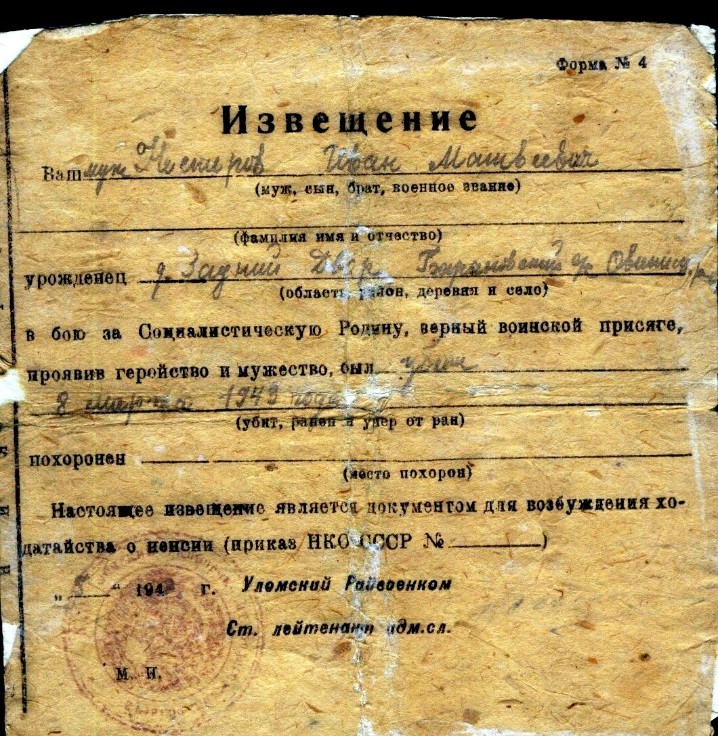 Форма № 4
Извещение
Ваш муж Нестеров Иван Матвеевич
(муж, сын, брат, военное звание)
(фамилия имя и отчество)
урожденец д. Задний Двор
(область, район, деревня и село)
в бою за Социалистическую Родину, верный воинской присяге,
проявив геройство и мужество, был убит
8 марта 1943 года
(убит, ранен и умер от ран)
похоронен
(место похорон)
Настоящее извещение является документом для возбуждения хо-
датайства о пенсии (приказ НКО СССР № )
„ “ 194 г. Уломский Райвоенком
Ст. лейтенант адм.сл.
М. П.